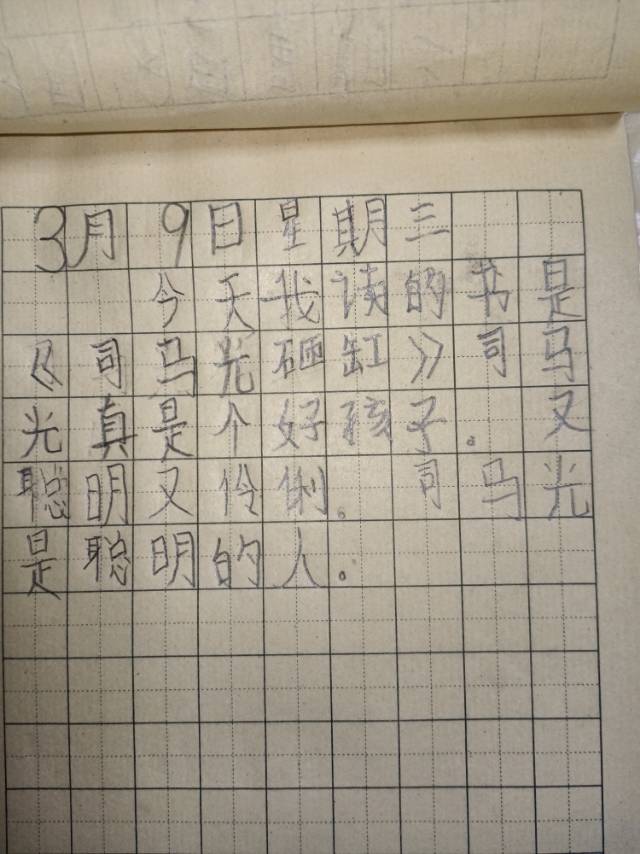 3月9日星期三
今天我读的书是
《司马光砸缸》司马
光真是个好孩子。又
聪明又伶俐。司马光
是聪明的人。